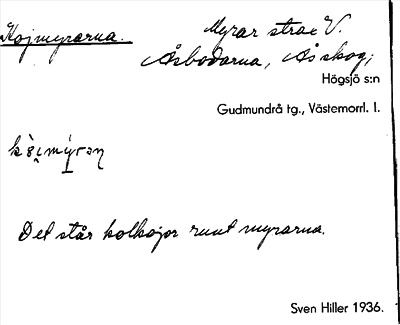 Kojmyrarna.
Myrar strax V.
Åsbodarna, Åsskog,
Högsjö s:n
Gudmundrå tg., Västernorrl. l.
Det står kolkojor runt myrarna.
Sven Hiller 1936.